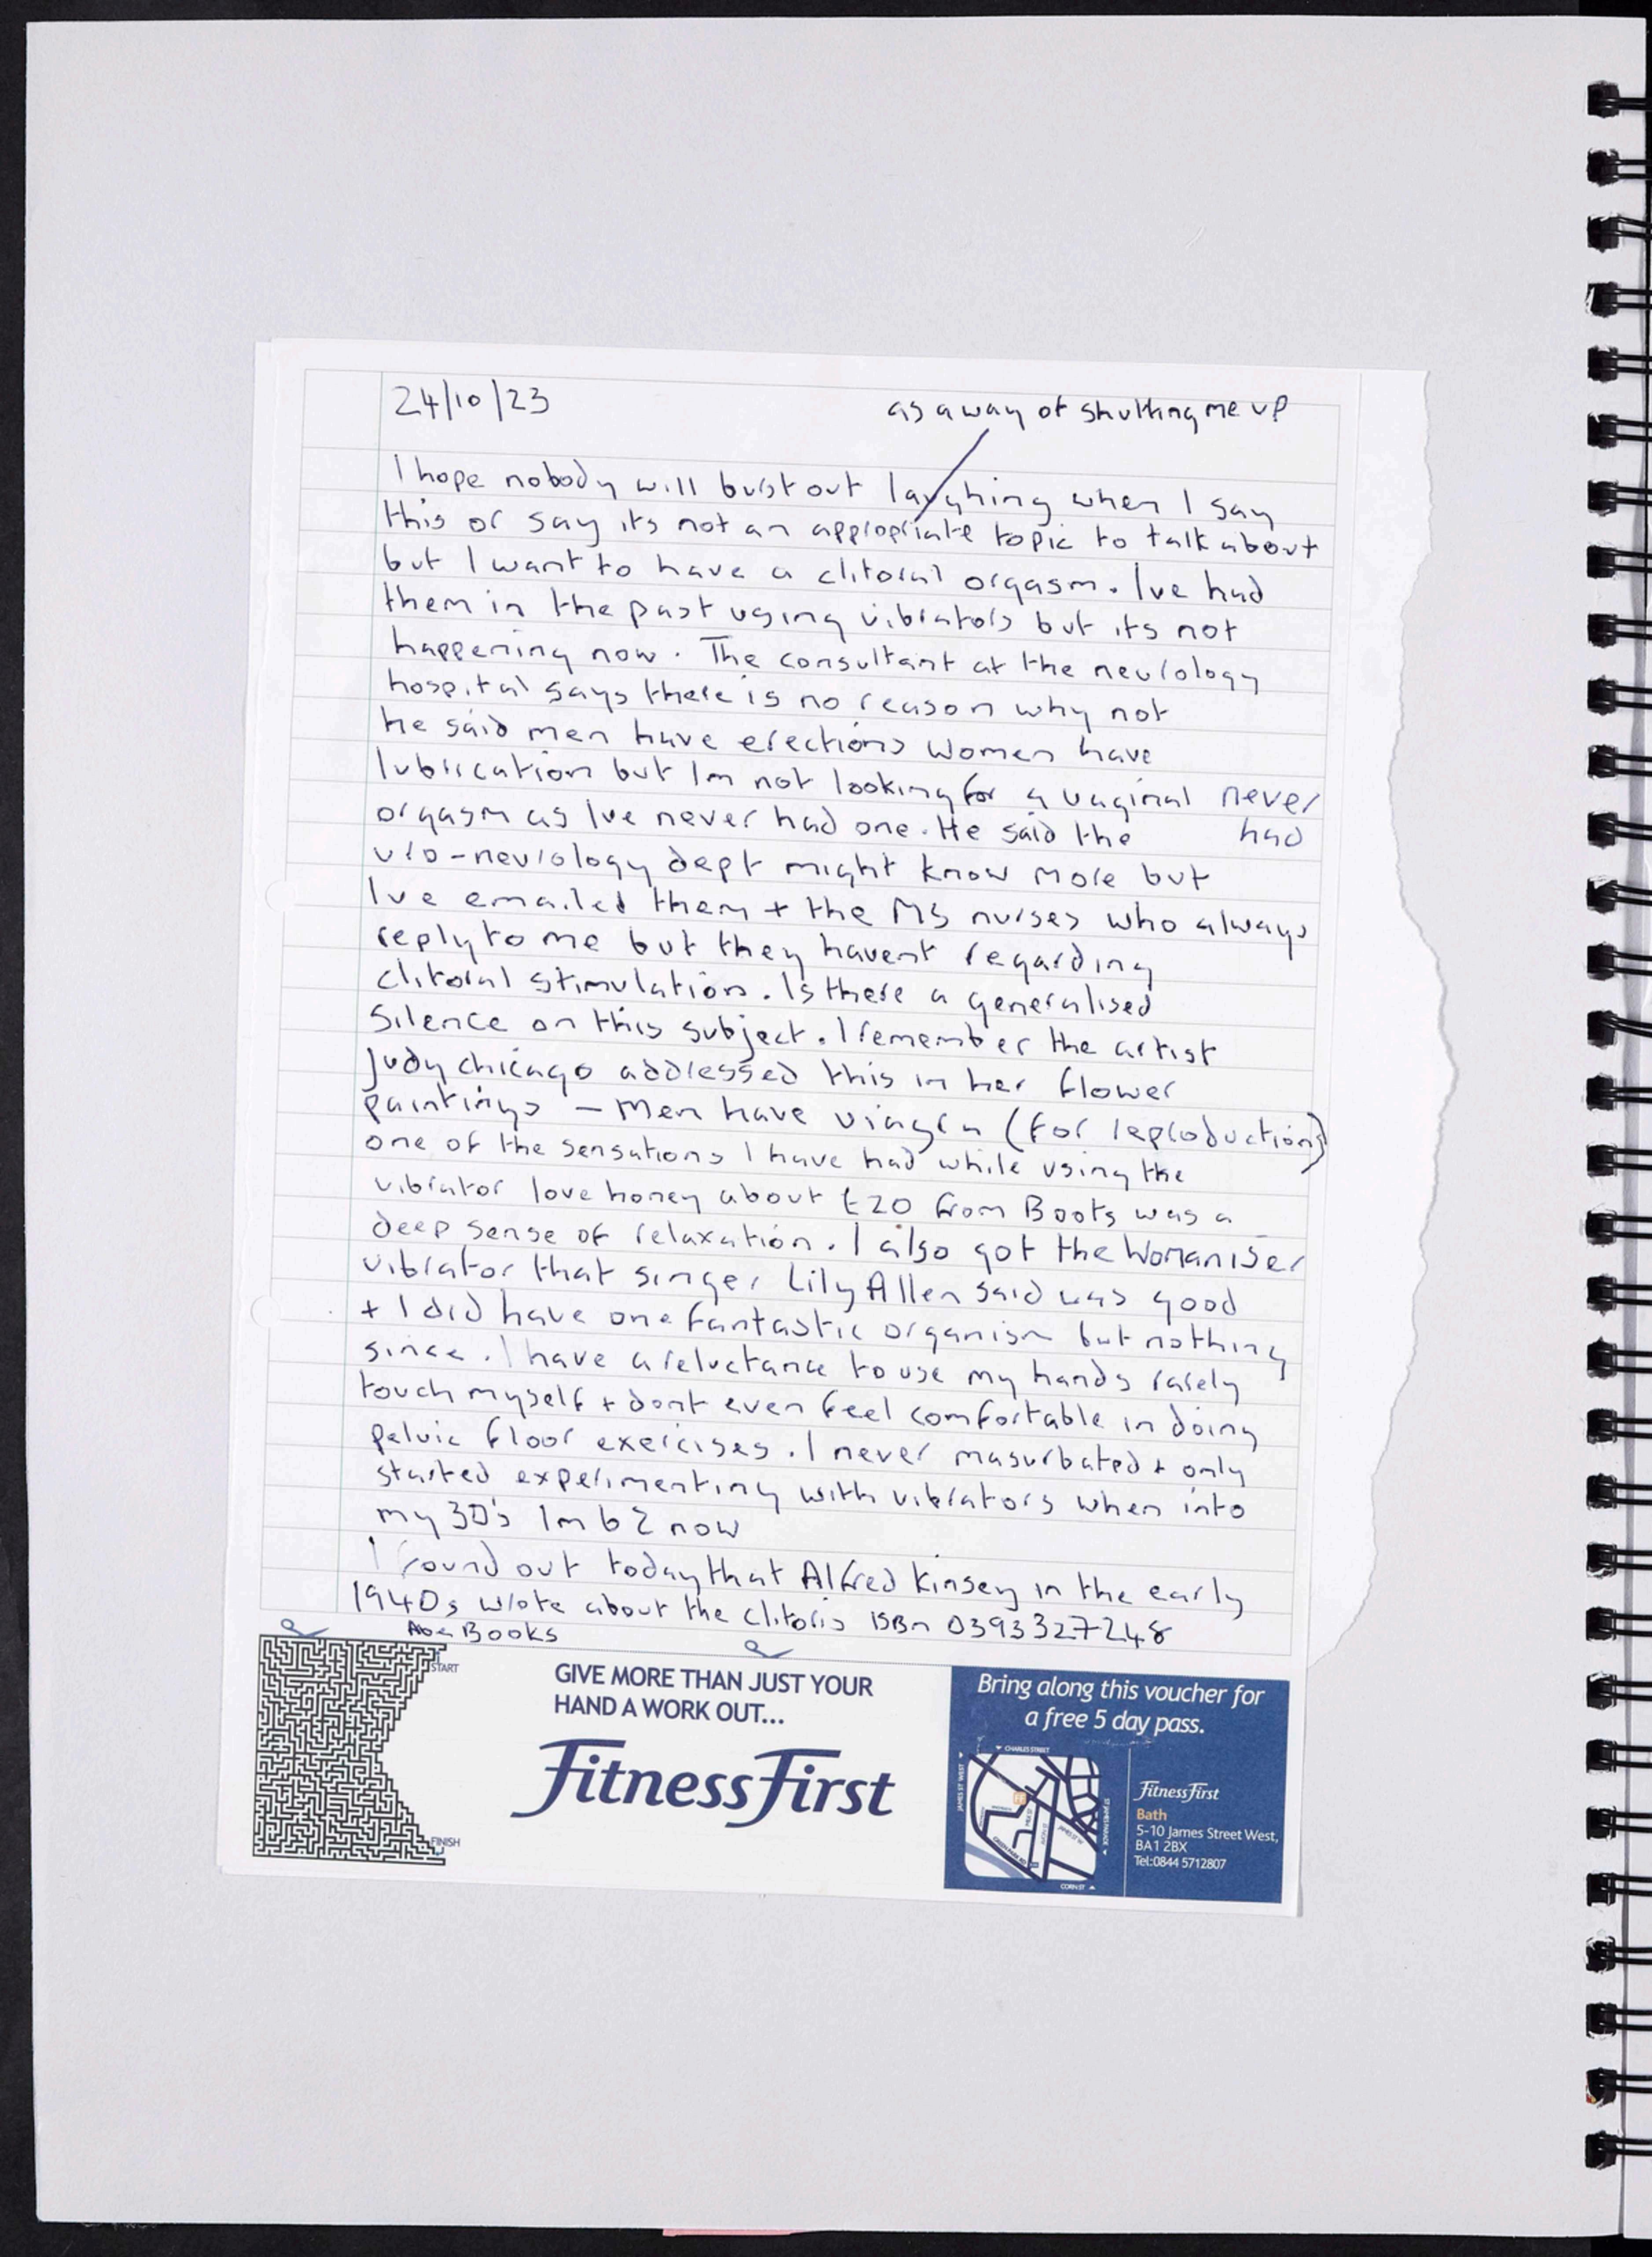 24/10/23
as a way of shutting me up
I hope nobody will burst out laughing when I say
this or say its not an appropriate topic to talk about
but I want to have a clitoral orgasm. Ive had
them in the past using vibrators but its not
happening now. The consultant at the neurology
hospital says there is no reason why not
he said men have erections women have
lubrication but Im not looking for a vaginal never
orgasm as Ive never had one. He said the had
uro-neurology dept might know more but
Ive emailed them + the MS nurses who always
reply to me but they havent regarding
clitoral stimulation. Is there a generalised
silence on this subject. I remember the artist
Judy chicago addressed this in her flower
paintings – Men have viagra (for reproduction)
one of the sensations I have had while using the
vibrator love honey about £20 from Boots was a
deep sense of relaxation. I also got the Womaniser
vibrator that singer Lily Allen said was good
+ I did have one fantastic organism but nothing
since. I have a reluctance to use my hands rarely
touch myself + dont even feel comfortable in doing
pelvic floor exercises. I never masurbated + only
started experimenting with vibrators when into
my 30's Im 62 now
I found out today that Alfred Kinsey in the early
1940s wrote about the clitoris ISBn 0393327248
Abe Books
START
FINISH
GIVE MORE THAN JUST YOUR
HAND A WORK OUT...
Fitness First
Bring along this voucher for
a free 5 day pass.
CHARLES STREET
JAMES ST WEST
ST JAMES PARADE
MILK ST
AVON ST
JAMES ST W
GREEN PARK RD
FF
CORN ST
Fitness First
Bath
5-10 James Street West,
BA1 2BX
Tel:0844 5712807